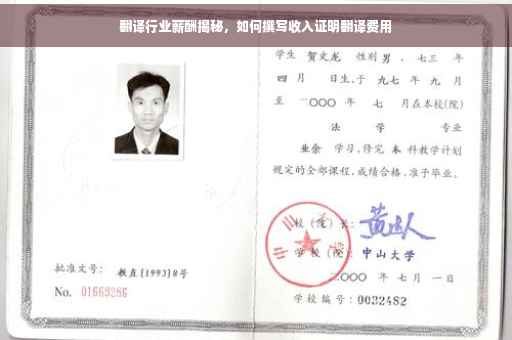 翻译行业薪酬揭秘，如何撰写收入证明翻译费用
学生 贺文龙 性别 男 、七三 年
四 月 日生，于 九七 年 九 月
至 二〇〇〇 年 七 月在本校(院)
法 学 专业
业余 学习，修完 本 科教学计划
规定的全部课程，成绩合格，准予毕业。
校(院)长：
学校(院)：中山大学
二〇〇〇 年 七 月 一 日
批准文号： 教直[1993]8号
No. 01669286
学校编号：0032482